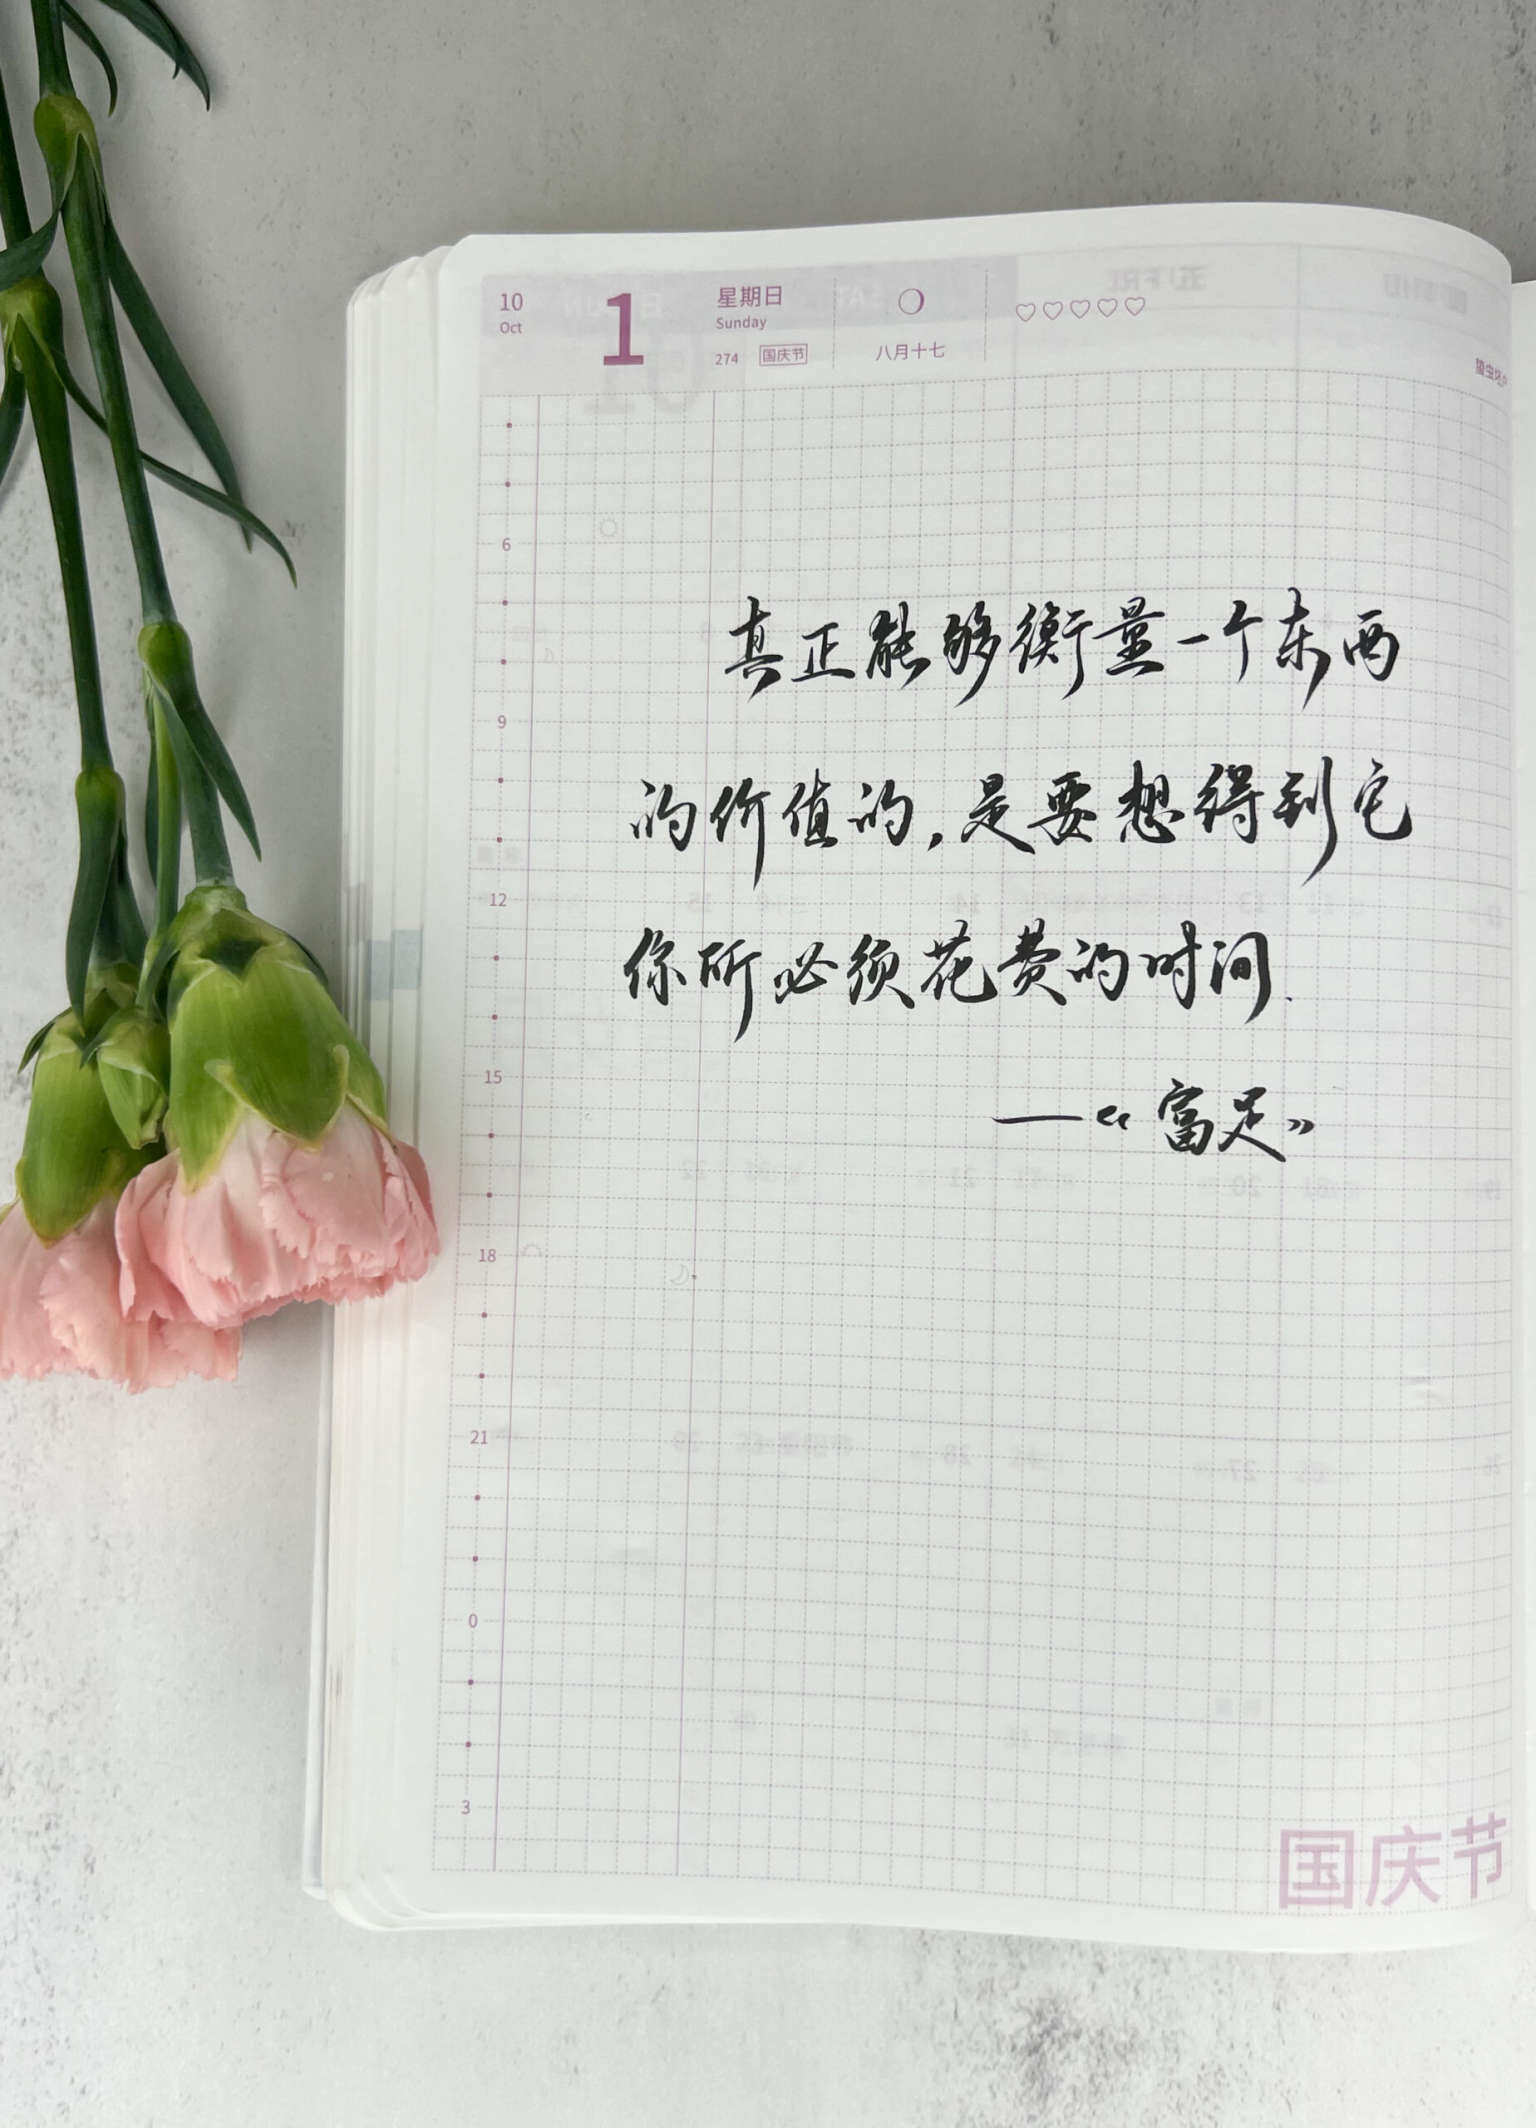 10
Oct
1
星期日
Sunday
274 国庆节
八月十七
6
9
12
15
18
21
0
3
真正能够衡量一个东西
的价值的，是要想得到它
你所必须花费的时间.
—《富足》
国庆节